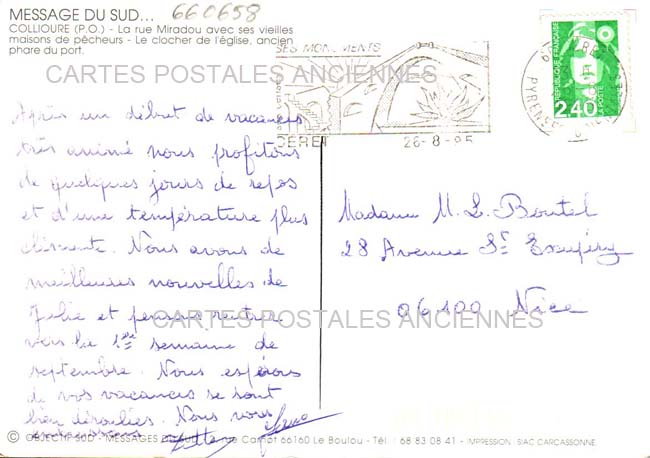 MESSAGE DU SUD... 660658
COLLIOURE (P.O.) - La rue Miradou avec ses vieilles
maisons de pêcheurs - Le clocher de l'église, ancien
phare du port.
SES MONUMENTS
CERET 26-8-95
PYRENEES
RÉPUBLIQUE FRANÇAISE
2,40
CARTES POSTALES ANCIENNES
Après un début de vacances
très animé nous profitons
de quelques jours de repos
et d'une température plus
clémente. Nous avons de
meilleures nouvelles de
Julie et pensons rentrer
vers la 1ère semaine de
septembre. Nous espérons
de vos vacances se sont
bien déroulées. Nous vous
embrassons
Madame M. L. Boutel
28 Avenue St Exupéry
06100 Nice
CARTES POSTALES ANCIENNES
© OBJECTIF SUD - MESSAGES DU SUD Carnot 66160 Le Boulou - Tél. : 68 83 08 41 - IMPRESSION : SIAC CARCASSONNE